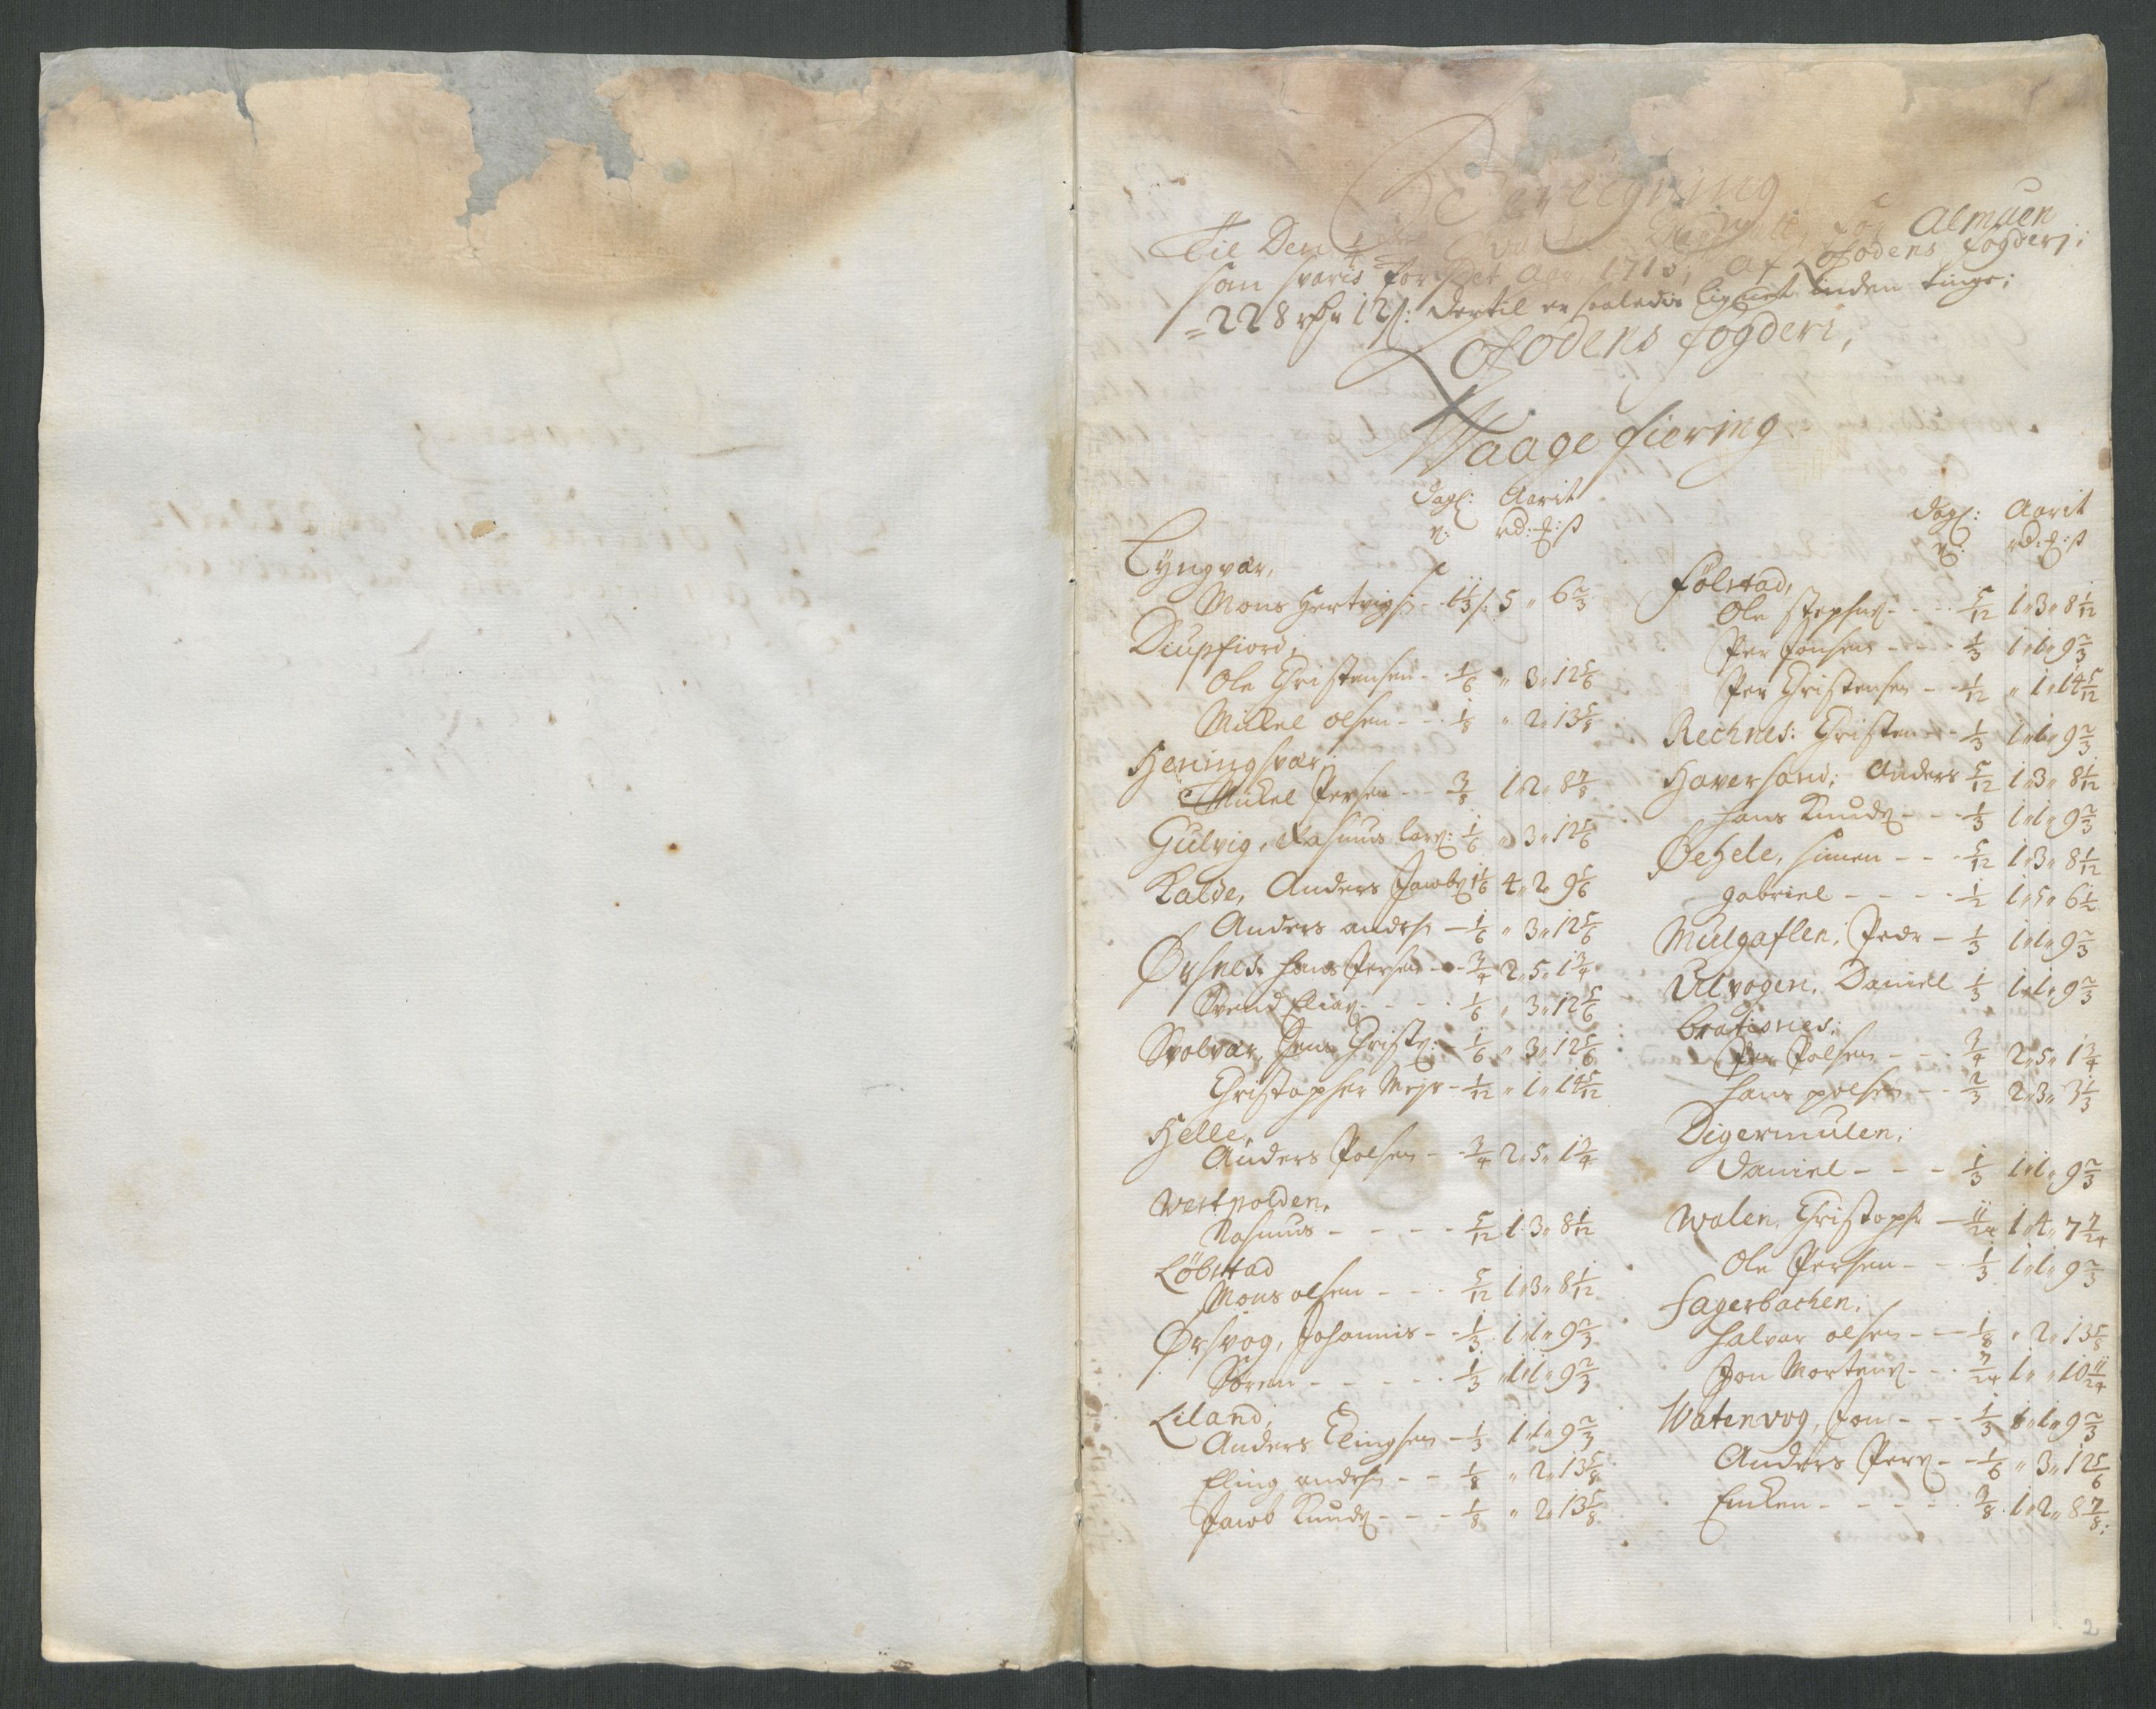 Bereigning
Til Den 1/4 Almuen
som svaris for Det Aar 1713, af Lofodens fogderj;
228 rdr 12 s: dertil er saaledis lignet inden tinge;
Lofodens fogderi,
Waage fiering
dagl: Aarit
v: rd: : s
Lyngvær,
Mons Hertvigs - 1 1/3 5 " 6 2/3
Diupfiord;
Ole Christensen - 1/6 " 3 " 12 5/6
Mickel olsen - - 1/8 " 2 " 13 5/8
Heningsvær;
Mickel Persen - - 3/8 1 " 2 " 8 7/8
Gulvig, Rasmus Lars: 1/6 " 3 " 12 5/6
Kalde, Anders Jacobs 1 1/6 4 " 2 " 9 5/6
Anders anders - 1/6 " 3 " 12 5/6
Ørsnes: Hans Persen - - 3/4 2 " 5 " 1 3/4
Svend Elias - - - 1/6 " 3 " 12 5/6
Svolvær, Jens Christ: - 1/6 " 3 " 12 5/6
Christopher Mejr - 1/12 " 1 " 14 5/12
Helle,
Anders Polsen - - 3/4 2 " 5 " 1 3/4
Westpolden,
Rasmus - - - - 5/12 1 " 3 " 8 1/12
Löbstad
Mons olsen - - - 5/12 1 " 3 " 8 1/12
Ørsvog, Johannis - - 1/3 1 " 1 " 9 2/3
Sören - - - - - 1/3 1 " 1 " 9 2/3
Liland;
Anders Elingsen - 1/3 1 " 1 " 9 2/3
Eling anders - - 1/8 " 2 " 13 5/8
Jacob Knuds - - - 1/8 " 2 " 13 5/8
dagl: Aarit
v: rd: : s
Fölstad,
Ole Stephens - - - 5/12 1 " 3 " 8 1/12
Per Jonsen - - - 1/3 1 " 1 " 9 2/3
Per Christensen - - 1/12 " 1 " 14 5/12
Rechnes: Christen - 1/3 1 " 1 " 9 2/3
Haversand; Anders 5/12 1 " 3 " 8 1/12
Hans Knuds - - - 1/3 1 " 1 " 9 2/3
Øehele, Simen - - - 5/12 1 " 3 " 8 1/12
gabriel - - - - 1/2 1 " 5 " 6 1/2
Mulgaflen; Peder - 1/3 1 " 1 " 9 2/3
Ulvogen, Daniell 1/3 1 " 1 " 9 2/3
bratisnes;
Per Polsen - - - 3/4 2 " 5 " 1 3/4
Hans polsen - - 2/3 2 " 3 " 3 1/3
Digermulen;
Daniel - - - 1/3 1 " 1 " 9 2/3
Walen, Christopher - 11/24 1 " 4 " 7 7/24
Ole Persen - - 1/3 1 " 1 " 9 2/3
Fagerbachen;
Halvar olsen - - 1/8 " 2 " 13 5/8
Jon Mortens - - - 7/24 1 " " 10 11/24
Watenvog, Jon - - - 1/3 1 " 1 " 9 2/3
Anders Pers - - 1/6 " 3 " 12 5/6
- - - - - 3/8 1 " 2 " 8 7/8;
2